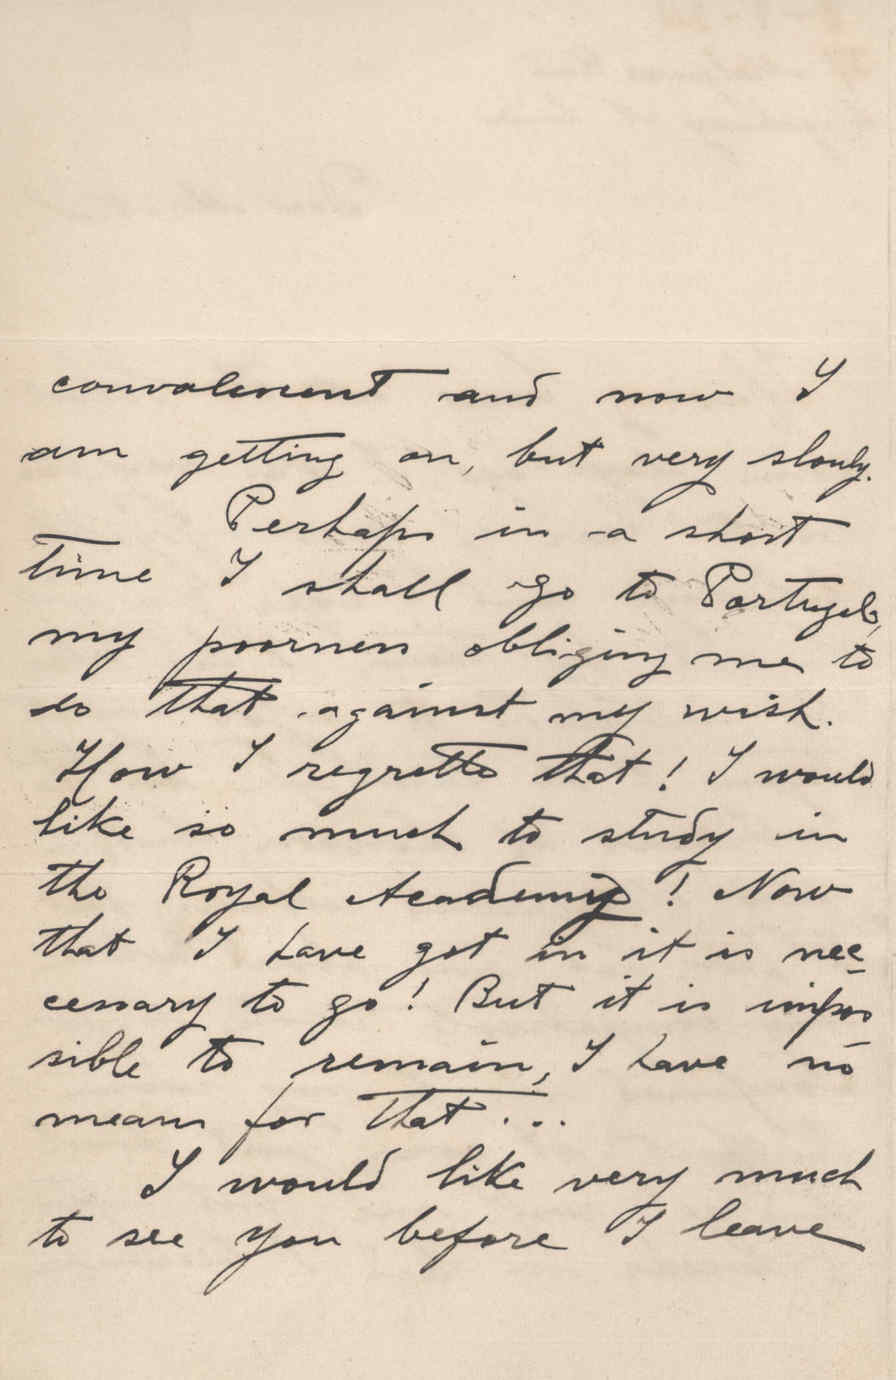 convalescent and now I
am getting on, but very slowly.
Perhaps in a short
time I shall go to Portugal,
my poorness obliging me to
do that against my wish.
How I regrette that! I would
like so much to study in
the Royal Academy! Now
that I have got in it is nec-
cessary to go! But it is impos
sible to remain, I have no
means for that...
I would like very much
to see you before I leave